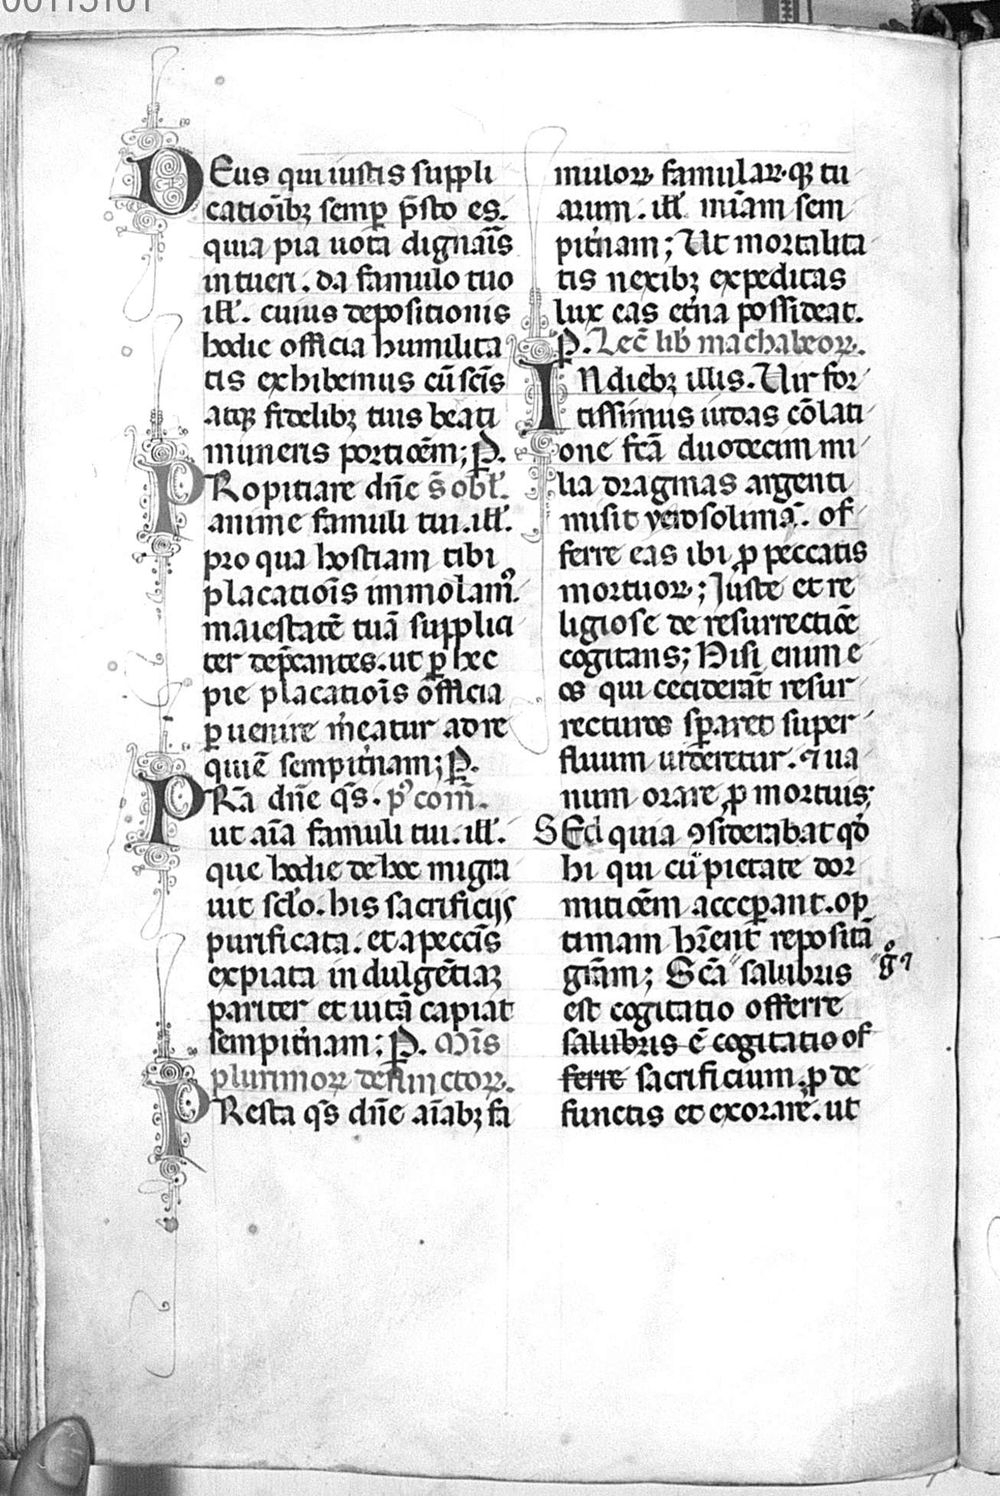 00113101
DEus qui iustis suppli
catiōibꝫ semꝑ p̄sto es.
quia pia uota dignar̄is
intueri. da famulo tuo
ill̄. cuius depositionis
hodie officia humilita
tis exhibemus cū sc̄is
atqꝫ fidelibꝫ tuis beati
muneris portiōem; P.
PRopitiare dn̄e s̄ obl̄.
anime famuli tui. ill̄.
pro qua hostiam tibi
placatiōis immolamꝰ.
maiestatē tuā supplici
ter dep̄cantes. ut ꝑ hec
pie placatiōis officia
ꝑuenire m̄eatur ad re
quiē sempit̄nam; P.
PRā dn̄e qs̄. pꝰ com̄.
ut aīa famuli tui. ill̄.
que hodie de hoc migra
uit sc̄lo. his sacrificijs
purificata. et a pecc̄is
expiata indulgētiaꝫ
pariter et uitā capiat
sempit̄nam; P. Mīs
plurimoꝝ defunctoꝝ.
PResta qs̄ dn̄e aīabꝫ fa
muloꝝ famulaꝝ. qꝫ tu
arum. ill̄. mīam sem
pit̄nam; Ut mortalita
tis nexibꝫ expeditas
lux eas et̄na possideat.
P. Lec̄ lib̄ machabeoꝝ.
IN diebꝫ illis. Uir for
tissimus iudas cōlati
one fc̄ā duodecim mi
lia dragmas argenti
misit yerosolimā. of
ferre eas ibi ꝓ peccatis
mortuoꝝ; Juste et re
ligiose de resurrectiōe
cogitans; Nisi enim e
os qui ceciderāt resur
recturos sꝑaret super
fluum uideretur. ⁊ ua
num orare ꝓ mortuis;
SEd quia ꝯsiderabat qd̄
hi qui cū pietate dor
mitiōem acceꝑant. op
timam hr̄ent repositā
gr̄am; Sc̄ā salubris g̊ ⁊
est cogitatio offerre
salubris ē cogitatio of
ferre sacrificium ꝓ de
functis et exorare. ut